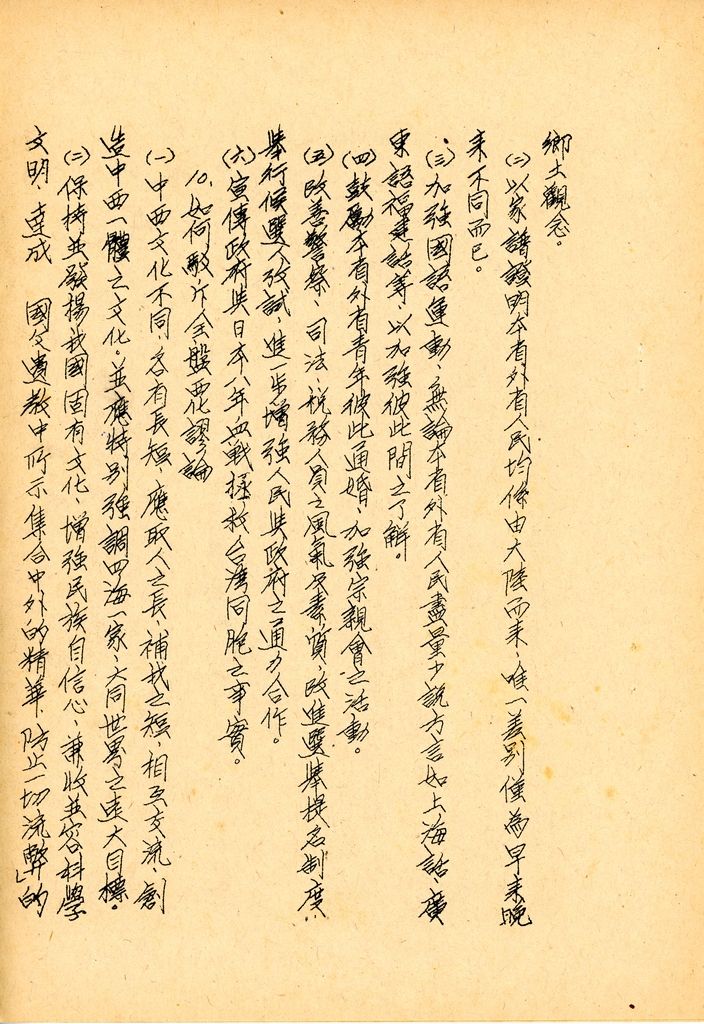 鄉土觀念。
(二)以家譜證明本省外省人民均係由大陸而來、唯一差別僅為早來晚
來不同而已。
(三)加強國語運動、無論本省外省人民盡量少說方言如上海話、廣
東語福建話等、以加強彼此間之了解。
(四)鼓勵本省外省青年彼此通婚、加強宗親會之活動。
(五)改善警察、司法、稅務人員之風氣及素質、改進選舉提名制度、
舉行候選人攷試、進一步增強人民與政府之通力合作。
(六)宣傳政府與日本八年血戰拯救台灣同胞之事實。
10.如何駁斥全盤西化謬論
(一)中西文化不同、各有長短、應取人之長、補我之短、相互交流、創
造中西一體之文化。並應特別強調四海一家、大同世界之遠大目標。
(二)保持並發揚我國固有文化、增強民族自信心、兼收並容科學
文明、達成　國父遺教中所示集合中外的精華、防止一切流弊」的